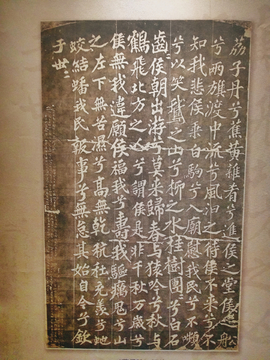 荔子丹兮蕉黃雜肴兮進侯之堂侯之船
兮兩旗渡中流兮風汨之待侯不來兮不
知我悲侯乘白駒兮入廟慰我民兮不嚬
兮以笑鵝之山兮柳之水桂樹團〻兮白石
齒〻侯朝出遊兮莫來歸春與猿吟兮秋與
鶴飛北方之人兮謂侯是非千秋萬歲兮
侯無我違願侯福我兮壽我驅厲鬼兮山
之左下無苦濕兮高無乾秔稌充羨兮蛇
蛟結蟠我民報事兮無怠其始自今兮欽
于世〻